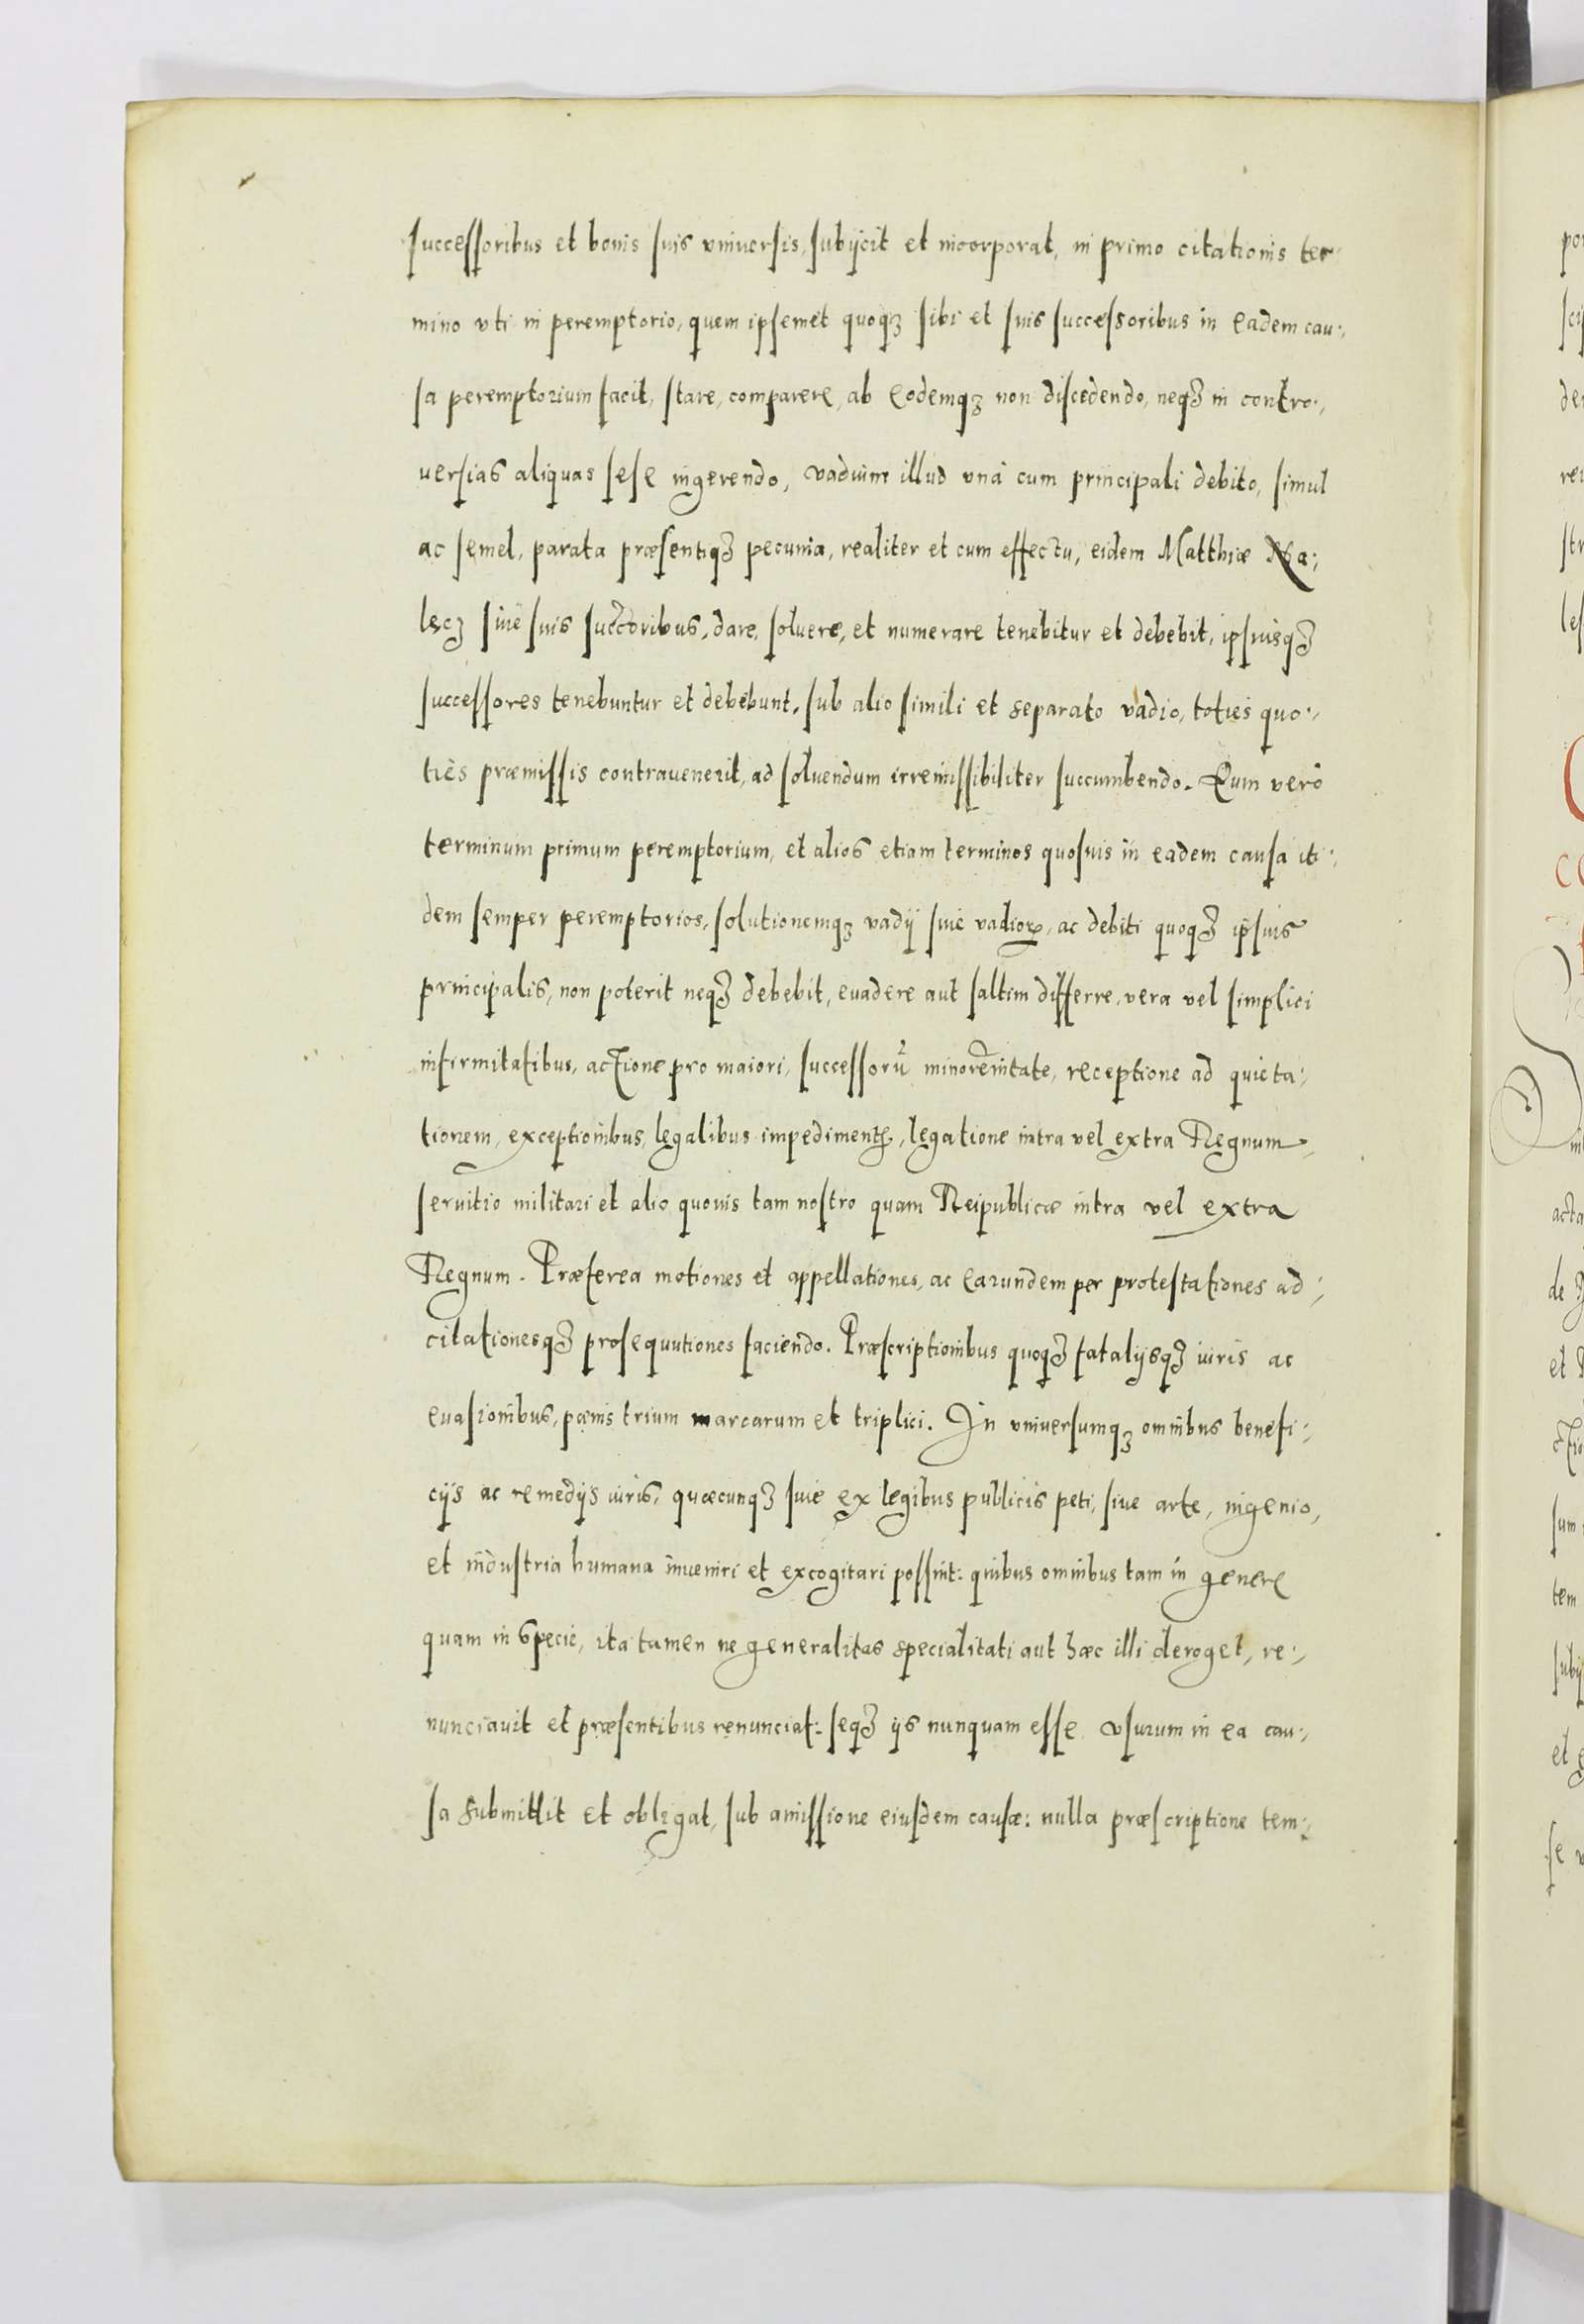 successoribus et bonis suis vniuersis, subijcit et incorporat, in primo citationis ter-
mino vti in peremptorio, quem ipsemet quoqꝫ sibi et suis successoribus in eadem cau-,
sa peremptorium facit, stare, comparere, ab eodemqꝫ non discedendo, neqꝫ in contro-,
uersias aliquas sese ingerendo, vadium illud vnà cum principali debito, simul
ac semel, parata præsentiqꝫ pecunia, realiter et cum effectu, eidem Matthiæ Na-,
siue suis succõribus, dare, soluere, et numerare tenebitur et debebit, ipsiusqꝫ
successores tenebuntur et debebunt, sub alio simili et separato vadio, toties quo-,
ties præmissis contrauenerit, ad soluendum irremissibiliter succumbendo. Quem verò
terminum primum peremptorium, et alios etiam terminos quosuis in eadem causa iti-,
dem semper peremptorios, solutionemqꝫ vadij siue vadioꝝ, ac debiti quoqꝫ ipsius
principalis, non poterit neqꝫ debebit, euadere aut saltim differre, vera vel simplici
infirmitatibus, actione pro maiori, successorũ minorẽnitate, receptione ad quieta-,
tionem, exceptionibus, legalibus impedimentꝭ, legatione intra vel extra Regnum,
seruitio militari et alio quouis tam nostro quam Reipublicæ intra vel extra
Regnum. Præterea motiones et appellationes, ac earundem per protestationes ad-,
citationesqꝫ prosequutiones faciendo. Præscriptionibus quoqꝫ fatalijsqꝫ iuris ac
euasionibus, pœnis trium marcarum et triplici. In vniuersumqꝫ omnibus benefi-,
cijs ac remedijs iuris, quæcunqꝫ siue ex legibus publicis peti, siue arte, ingenio,
et industria humana inueniri et excogitari possint: quibus omnibus tam in genere
quam in specie, ita tamen ne generalitas specialitati aut hæc illi deroget, re-,
nunciauit et præsentibus renunciat: seqꝫ ijs nunquam esse vsurum in ea cau-,
sa submittit et obligat, sub amissione eiusdem causæ: nulla præscriptione tem-,